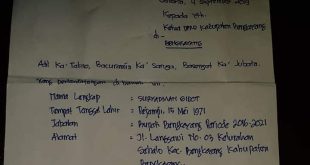 Kepada Yth.
Ketua DPRD Kabupaten Bengkayang
di -
BENGKAYANG
Adil Ka' Talino, Bacuramin Ka' Saruga, Basengat Ka' Jubata.
Yang bertandatangan di bawah ini :
Nama Lengkap : SURYADMAN GIDOT
Tempat Tanggal Lahir : 15 Mei 1971
Jabatan : Bupati Bengkayang Periode 2016-2021
Alamat : Jl. No. 03 Kelurahan
Sebalo Kec. Bengkayang Kabupaten
Bengkayang.